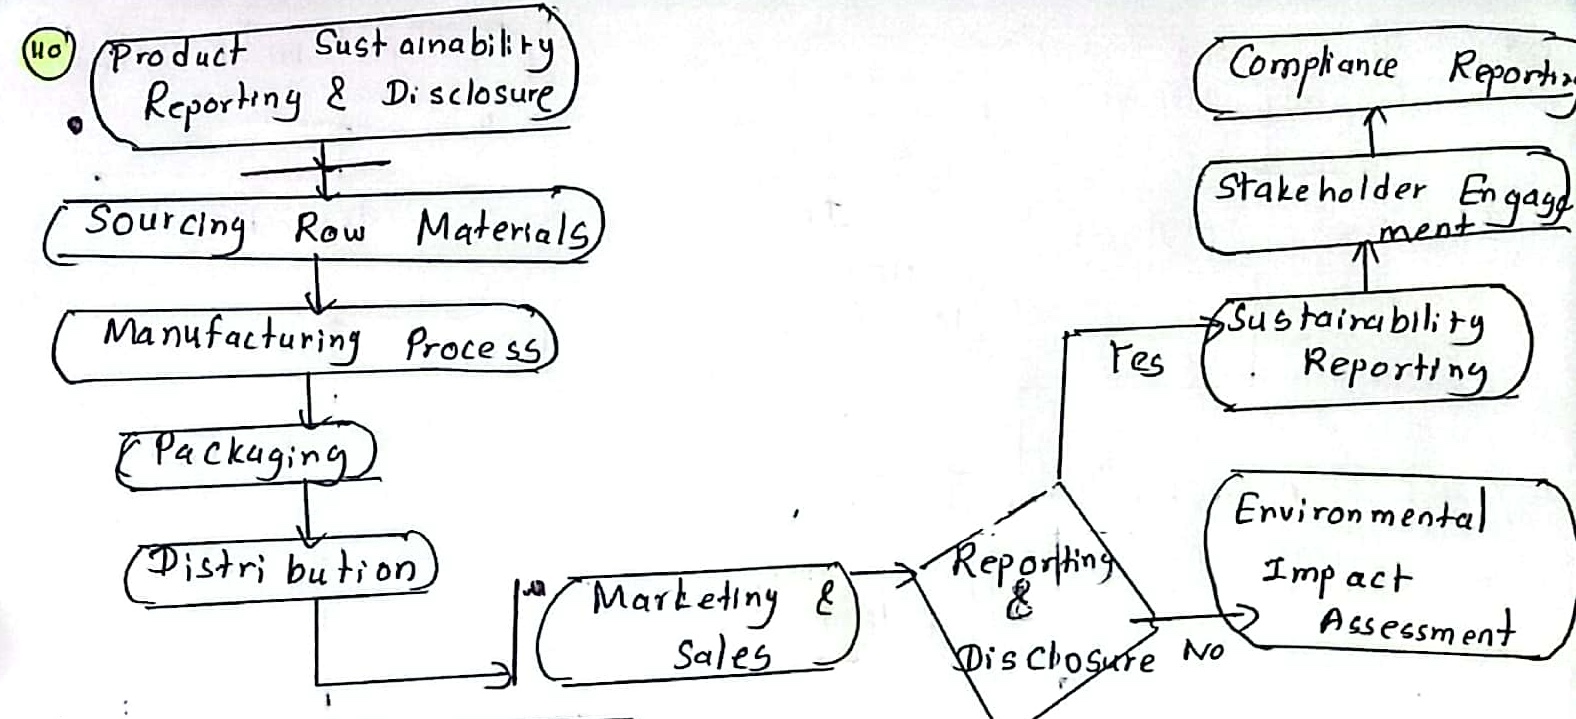 110
Product Sustainability
Reporting & Disclosure
Sourcing Row Materials
Manufacturing Process
Packaging
Distribution
Marketing &
Sales
Reporting
&
Disclosure
Yes
No
Compliance Reportin
Stakeholder Engage
ment
Sustainability
Reporting
Environmental
Impact
Assessment